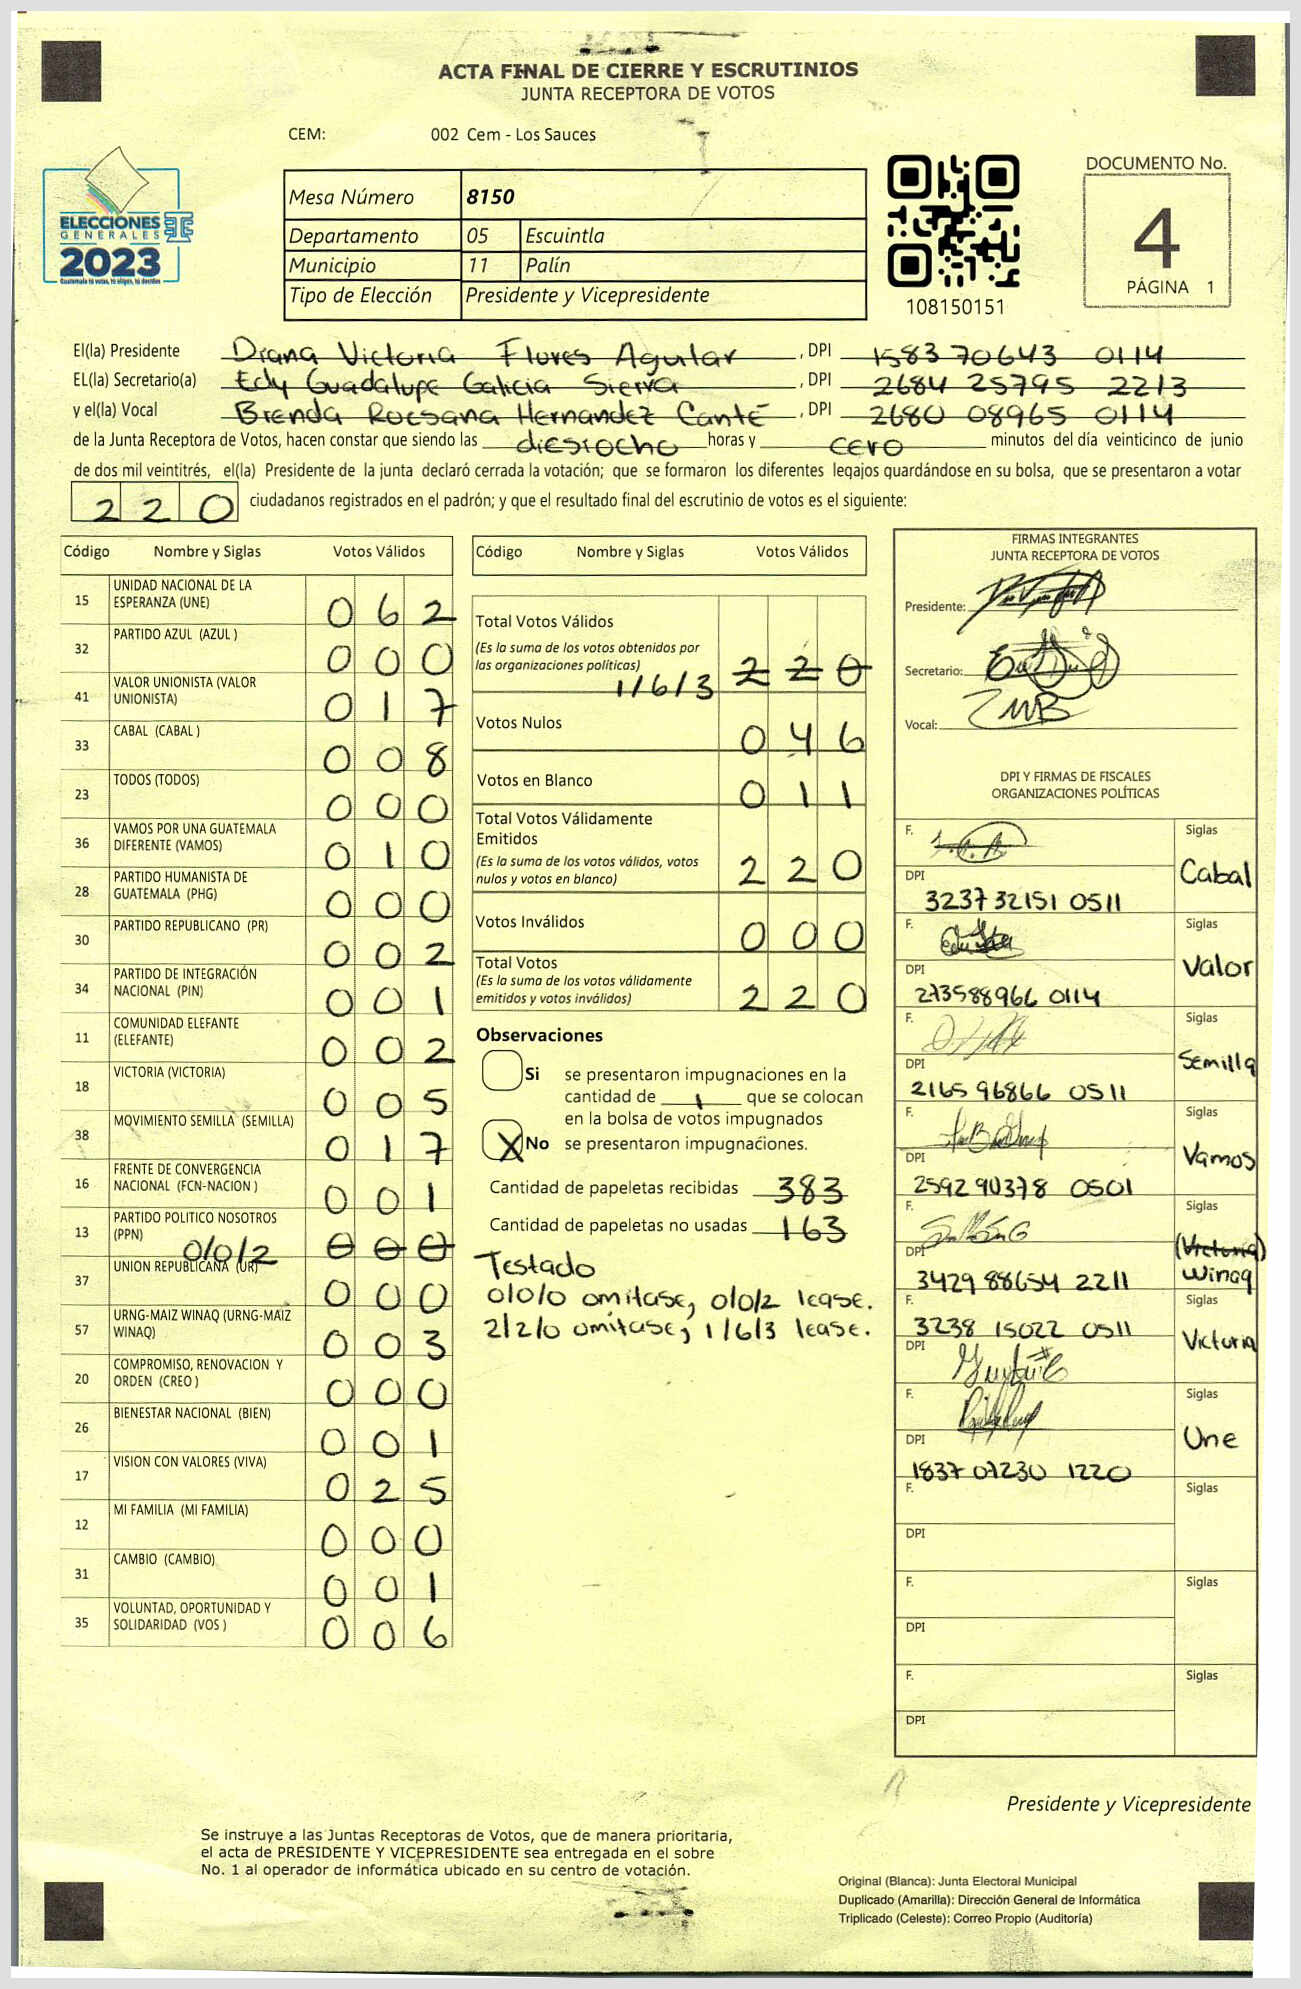 ACTA FINAL DE CIERRE Y ESCRUTINIOS
JUNTA RECEPTORA DE VOTOS
CEM: 002 Cem - Los Sauces
ELECCIONES
GENERALES
2023
Guatemala tú votas, tú eliges, tú decides
Mesa Número 8150
Departamento 05 Escuintla
Municipio 11 Palín
Tipo de Elección Presidente y Vicepresidente
108150151
DOCUMENTO No.
4
PÁGINA 1
El(la) Presidente Diana Victoria Flores Aguilar, DPI 1583 70643 0114
EL(la) Secretario(a) Edy Guadalupe Galicia Sierra, DPI 2684 25795 2213
y el(la) Vocal Brenda Rocsana Hernandez Canté, DPI 2680 08965 0114
de la Junta Receptora de Votos, hacen constar que siendo las diesiocho horas y cero minutos del día veinticinco de junio
de dos mil veintitrés, el(la) Presidente de la junta declaró cerrada la votación; que se formaron los diferentes legajos guardándose en su bolsa, que se presentaron a votar
220 ciudadanos registrados en el padrón; y que el resultado final del escrutinio de votos es el siguiente:
Código Nombre y Siglas Votos Válidos
15 UNIDAD NACIONAL DE LA
ESPERANZA (UNE) 062
32 PARTIDO AZUL (AZUL ) 000
41 VALOR UNIONISTA (VALOR
UNIONISTA) 017
33 CABAL (CABAL ) 008
23 TODOS (TODOS) 000
36 VAMOS POR UNA GUATEMALA
DIFERENTE (VAMOS) 010
28 PARTIDO HUMANISTA DE
GUATEMALA (PHG) 000
30 PARTIDO REPUBLICANO (PR) 002
34 PARTIDO DE INTEGRACIÓN
NACIONAL (PIN) 001
11 COMUNIDAD ELEFANTE
(ELEFANTE) 002
18 VICTORIA (VICTORIA) 005
38 MOVIMIENTO SEMILLA (SEMILLA) 017
16 FRENTE DE CONVERGENCIA
NACIONAL (FCN-NACION ) 001
13 PARTIDO POLITICO NOSOTROS
(PPN) 0/0/2 000
37 UNION REPUBLICANA (UR) 000
57 URNG-MAIZ WINAQ (URNG-MAIZ
WINAQ) 003
20 COMPROMISO, RENOVACION Y
ORDEN (CREO ) 000
26 BIENESTAR NACIONAL (BIEN) 001
17 VISION CON VALORES (VIVA) 025
12 MI FAMILIA (MI FAMILIA) 000
31 CAMBIO (CAMBIO) 001
35 VOLUNTAD, OPORTUNIDAD Y
SOLIDARIDAD (VOS ) 006
Código Nombre y Siglas Votos Válidos
Total Votos Válidos
(Es la suma de los votos obtenidos por
las organizaciones políticas) 1/6/3 220
Votos Nulos 046
Votos en Blanco 011
Total Votos Válidamente
Emitidos
(Es la suma de los votos válidos, votos
nulos y votos en blanco) 220
Votos Inválidos 000
Total Votos
(Es la suma de los votos válidamente
emitidos y votos inválidos) 220
Observaciones
Si se presentaron impugnaciones en la
cantidad de 1 que se colocan
en la bolsa de votos impugnados
X No se presentaron impugnaciones.
Cantidad de papeletas recibidas 383
Cantidad de papeletas no usadas 163
Testado
0/0/0 omitase, 0/0/2 lease.
2/2/0 omitase, 1/6/3 lease.
FIRMAS INTEGRANTES
JUNTA RECEPTORA DE VOTOS
Presidente:
Secretario:
Vocal:
DPI Y FIRMAS DE FISCALES
ORGANIZACIONES POLÍTICAS
F. Siglas
Cabal
DPI
3237 32151 0511
F. Siglas
Valor
DPI
273588966 0114
F. Siglas
Semilla
DPI
2165 96866 0511
F. Siglas
Vamos
DPI
2592 90378 0501
F. Siglas
(Victoria)
Winaq
DPI
3429 88654 2211
F. Siglas
3238 15022 0511
Victoria
DPI
F. Siglas
Une
DPI
1837 07230 1220
F. Siglas
DPI
F. Siglas
DPI
F. Siglas
DPI
Presidente y Vicepresidente
Se instruye a las Juntas Receptoras de Votos, que de manera prioritaria,
el acta de PRESIDENTE Y VICEPRESIDENTE sea entregada en el sobre
No. 1 al operador de informática ubicado en su centro de votación.
Original (Blanca): Junta Electoral Municipal
Duplicado (Amarilla): Dirección General de Informática
Triplicado (Celeste): Correo Propio (Auditoría)